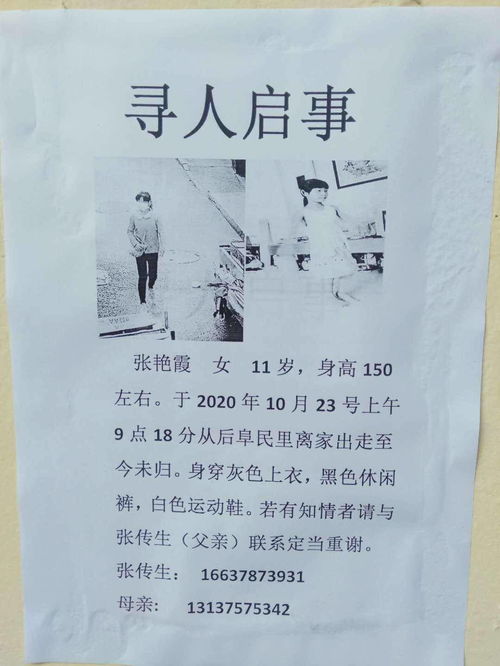 寻人启事
张艳霞 女 11岁，身高150
左右。于2020年10月23号上午
9点18分从后阜民里离家出走至
今未归。身穿灰色上衣，黑色休闲
裤，白色运动鞋。若有知情者请与
张传生（父亲）联系定当重谢。
张传生： 16637873931
母亲: 13137575342